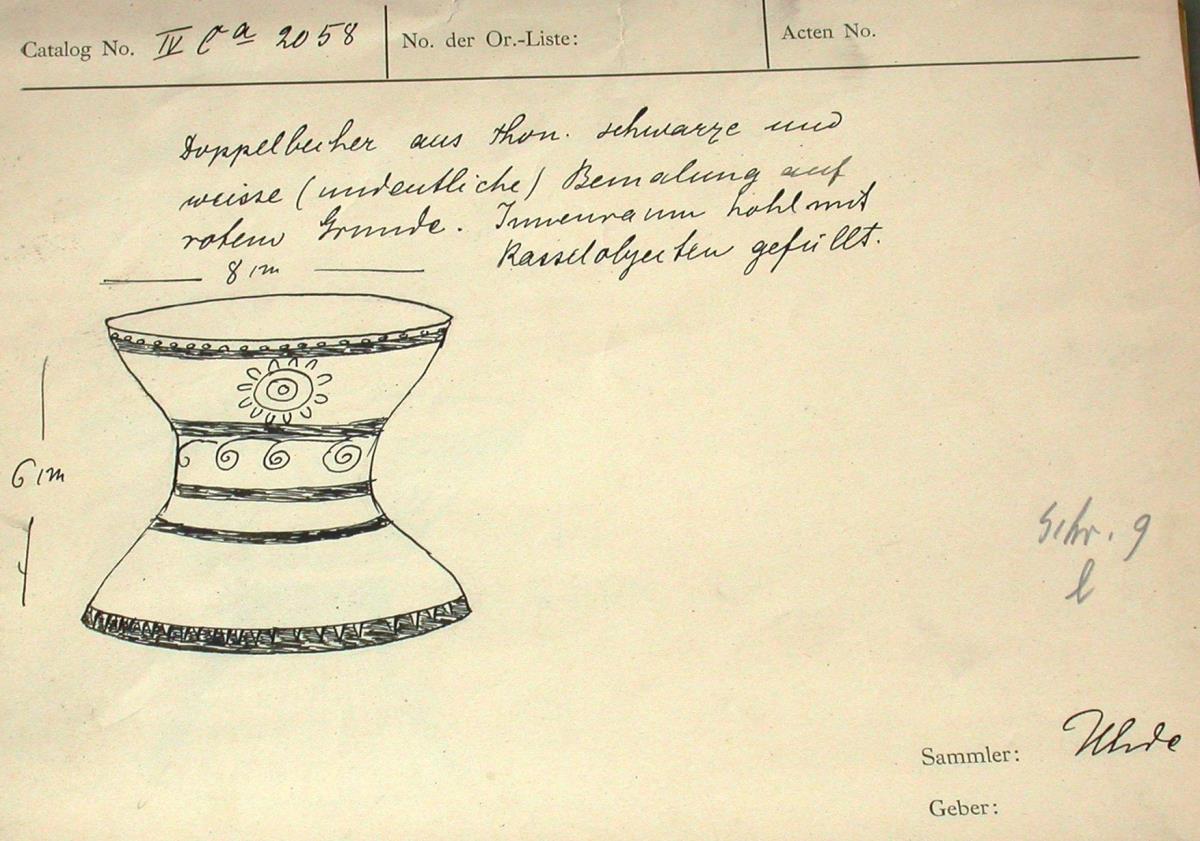 Catalog No. IV Ca 2058
No. der Or.-Liste:
Acten No.
Doppelbecher aus Thon. schwarze und
weisse (undeutliche) Bemalung auf
rotem Grunde. Innenraum hohl mit
Rasselobjecten gefüllt.
8 cm
6 cm
Schr. 9
l
Sammler: Uhde
Geber: